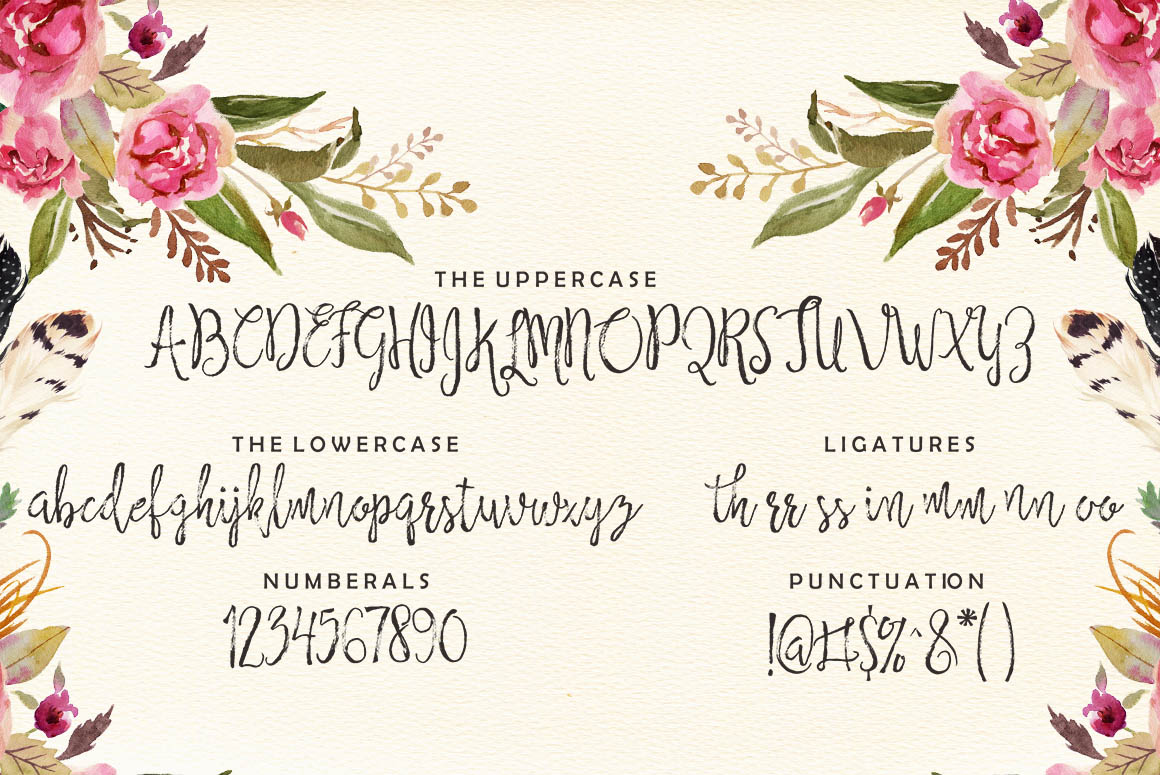 THE UPPERCASE
ABCDEFGHIJKLMNOPQRSTUVWXYZ
THE LOWERCASE
abcdefghijklmnopqrstuvwxyz
LIGATURES
th rr ss in mm nn oo
NUMBERALS
1234567890
PUNCTUATION
!@#$%^&*()